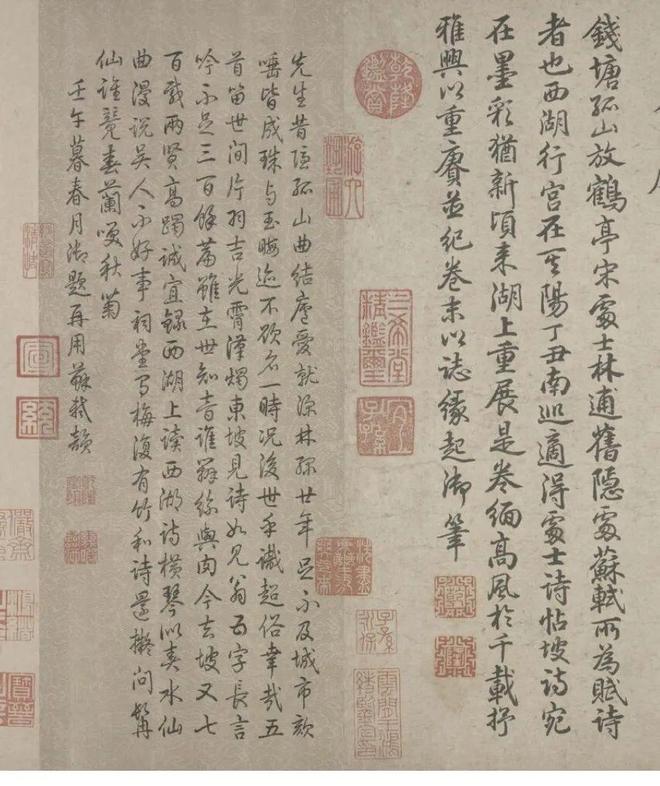 錢塘孤山放鶴亭宋處士林逋舊隱處蘇軾所為賦詩
者也西湖行宮在其陽丁丑南巡適得處士詩帖坡詩宛
在墨彩猶新頃來湖上重展是卷緬高風於千載抒
雅興以重賡並紀卷末以誌緣起御筆
乾隆鑑賞
三希堂精鑑璽
宜子孫
先生昔隱孤山曲結廬愛就深林綠廿年足不及城市欬
唾皆成珠与玉晦迹不欲名一時況後世乎識超俗幸哉五
首留世間片羽吉光霄漢燭東坡見詩如見翁百字長言
吟不足三百餘篇雖在世知音誰辧絲與肉今去坡又七
百載兩賢高躅誠宜録西湖上读西湖詩橫琴以奏水仙
曲漫説吳人不好事祠堂有梅復有竹和詩還擬問髯
仙誰竟春蘭秋菊
壬午暮春月御題再用蘇軾韻
宣統